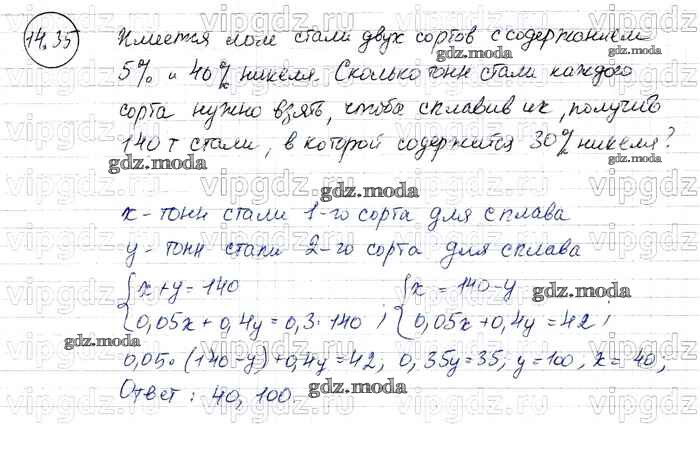 14.35 Имеется лом стали двух сортов с содержанием
5% и 40% никеля. Сколько тонн стали каждого
сорта нужно взять, чтобы сплавив их, получить
140 т стали, в которой содержится 30% никеля?
x - тонн стали 1-го сорта для сплава
y - тонн стали 2-го сорта для сплава
{x + y = 140 {x = 140 - y
{0,05x + 0,4y = 0,3·140 ; {0,05x + 0,4y = 42 ;
0,05·(140-y) + 0,4y = 42, 0,35y = 35; y = 100, x = 40,
Ответ: 40, 100.
gdz.moda
vipgdz.ru